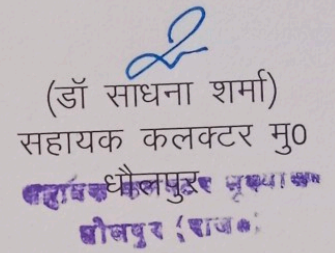 (डॉ साधना शर्मा)
सहायक कलक्टर मु०
धौलपुर
सहायक कलक्टर मुख्यालय
धौलपुर (राज०)